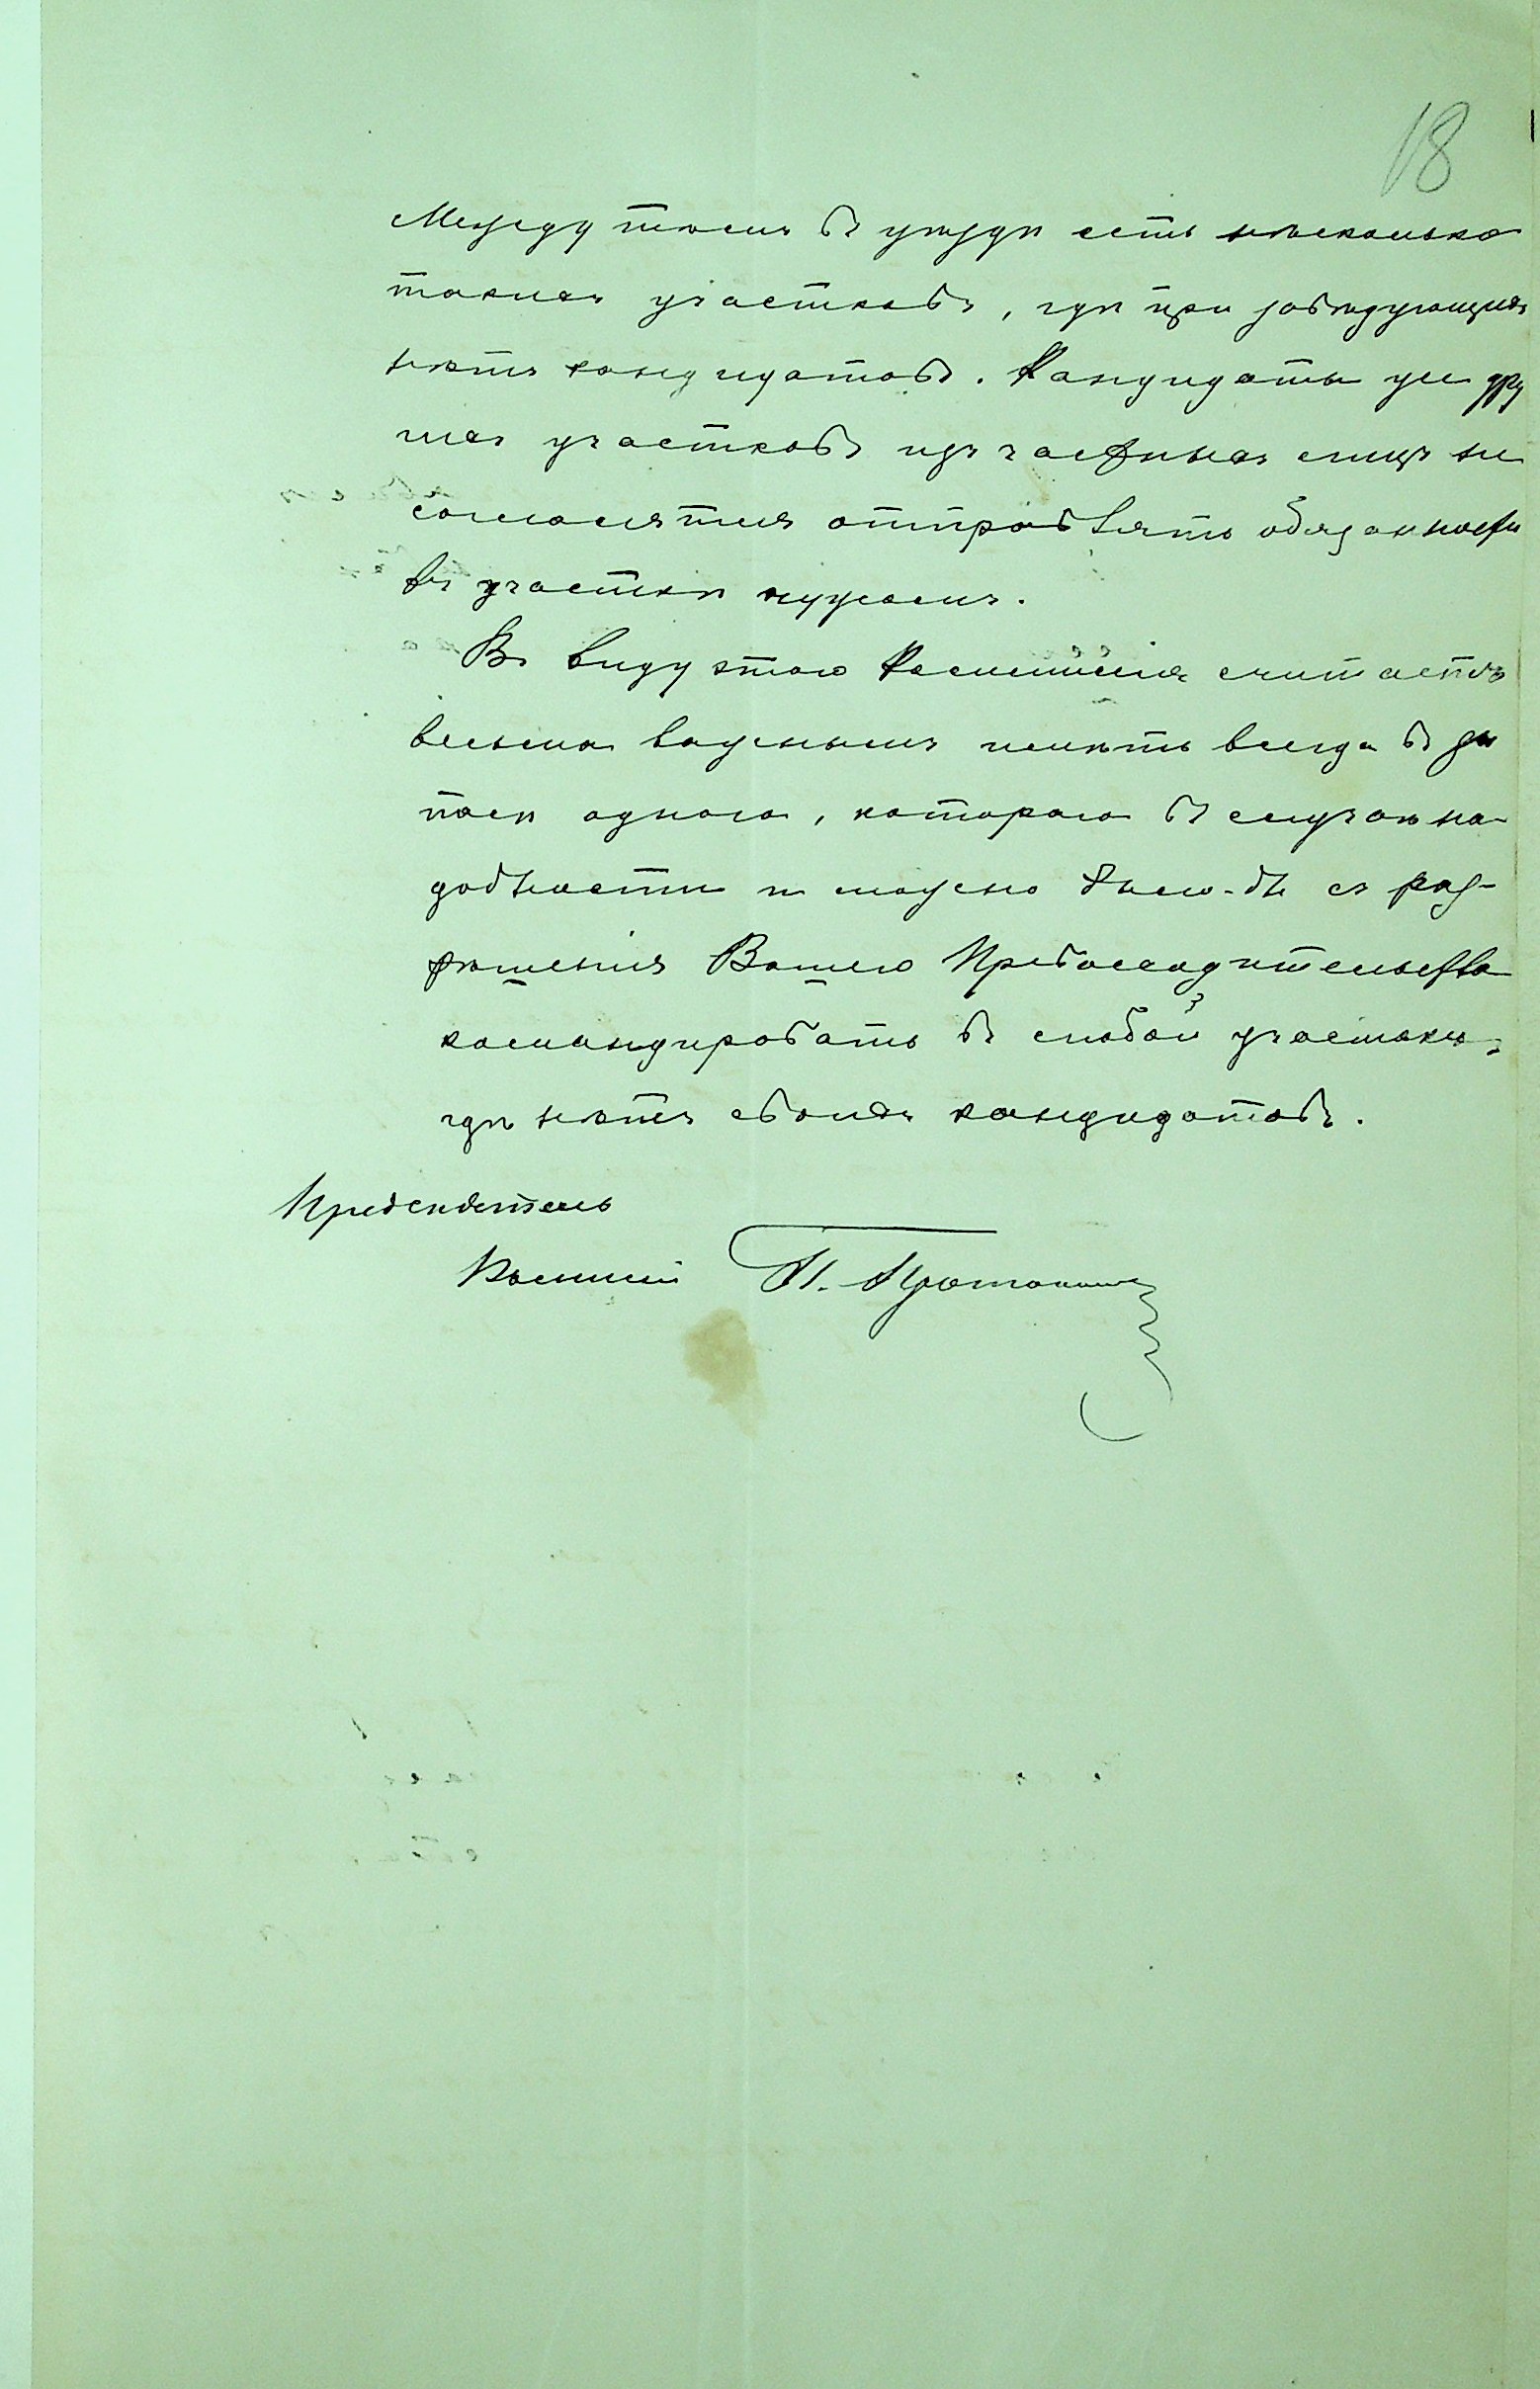 18
Между тѣмъ въ уѣздѣ есть нѣсколько
такихъ участковъ, гдѣ при завѣдующихъ
нѣтъ кандидатовъ. Кандидаты же дру
гихъ участковъ изъ частныхъ лицъ не
согласятся отправлять обязанности
въ участкѣ чужомъ.
Въ виду этого Коммиссія считаетъ
весьма важнымъ имѣть всегда въ за
пасѣ одного, котораго въ случаѣ на-
добности и можно было-бы съ раз-
рѣшенія Вашего Превосходительства
командировать въ любой участокъ,
гдѣ нѣтъ своихъ кандидатовъ.
Предсѣдатель
Коммиссіи П.